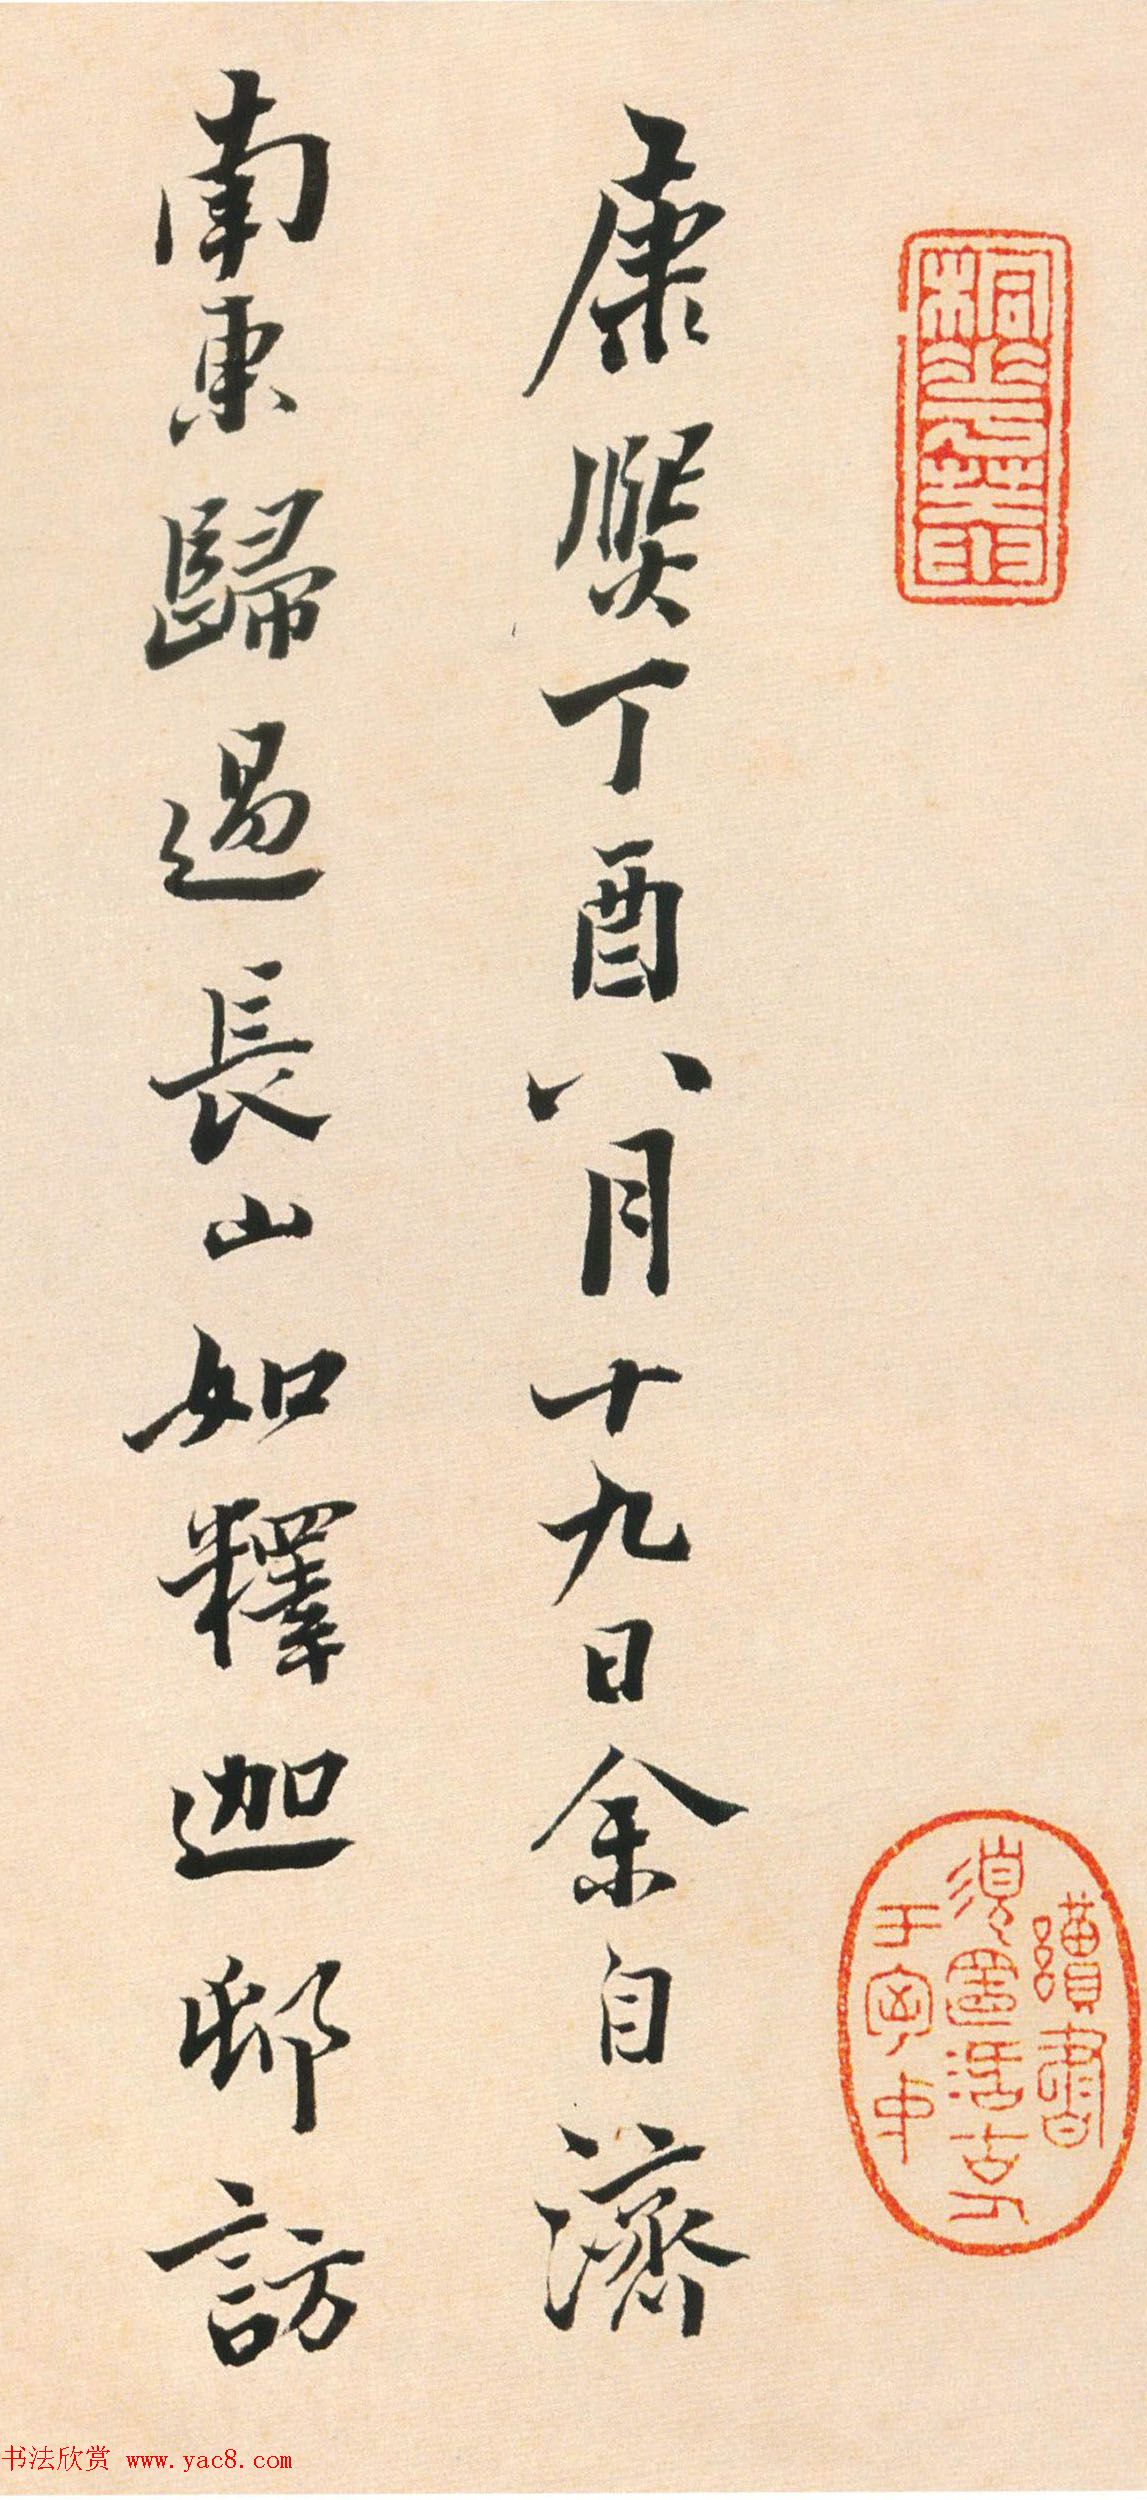 康熙丁酉八月十九日余自濟
南東歸過長山如釋迦邸訪
书法欣赏 www.yac8.com